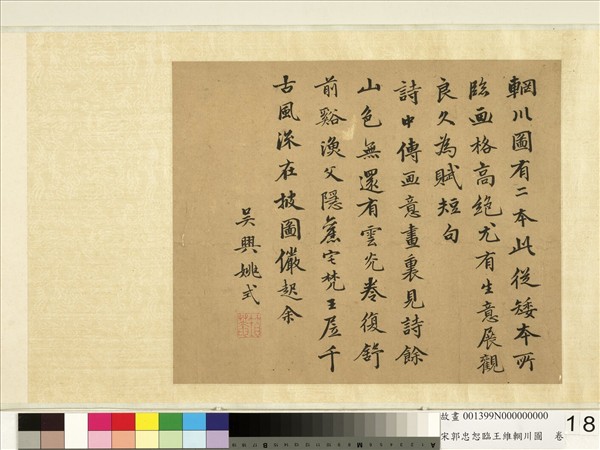 輞川圖有二本此從矮本所
臨画格高絕尤有生意展觀
良久為賦短句
詩中傳画意畫裏見詩餘
山色無還有雲光卷復舒
前谿漁父隱舊宅梵王居千
古風流在披圖儼起余
吳興姚式
故畫 001399N000000000
宋郭忠恕臨王維輞川圖 卷
18